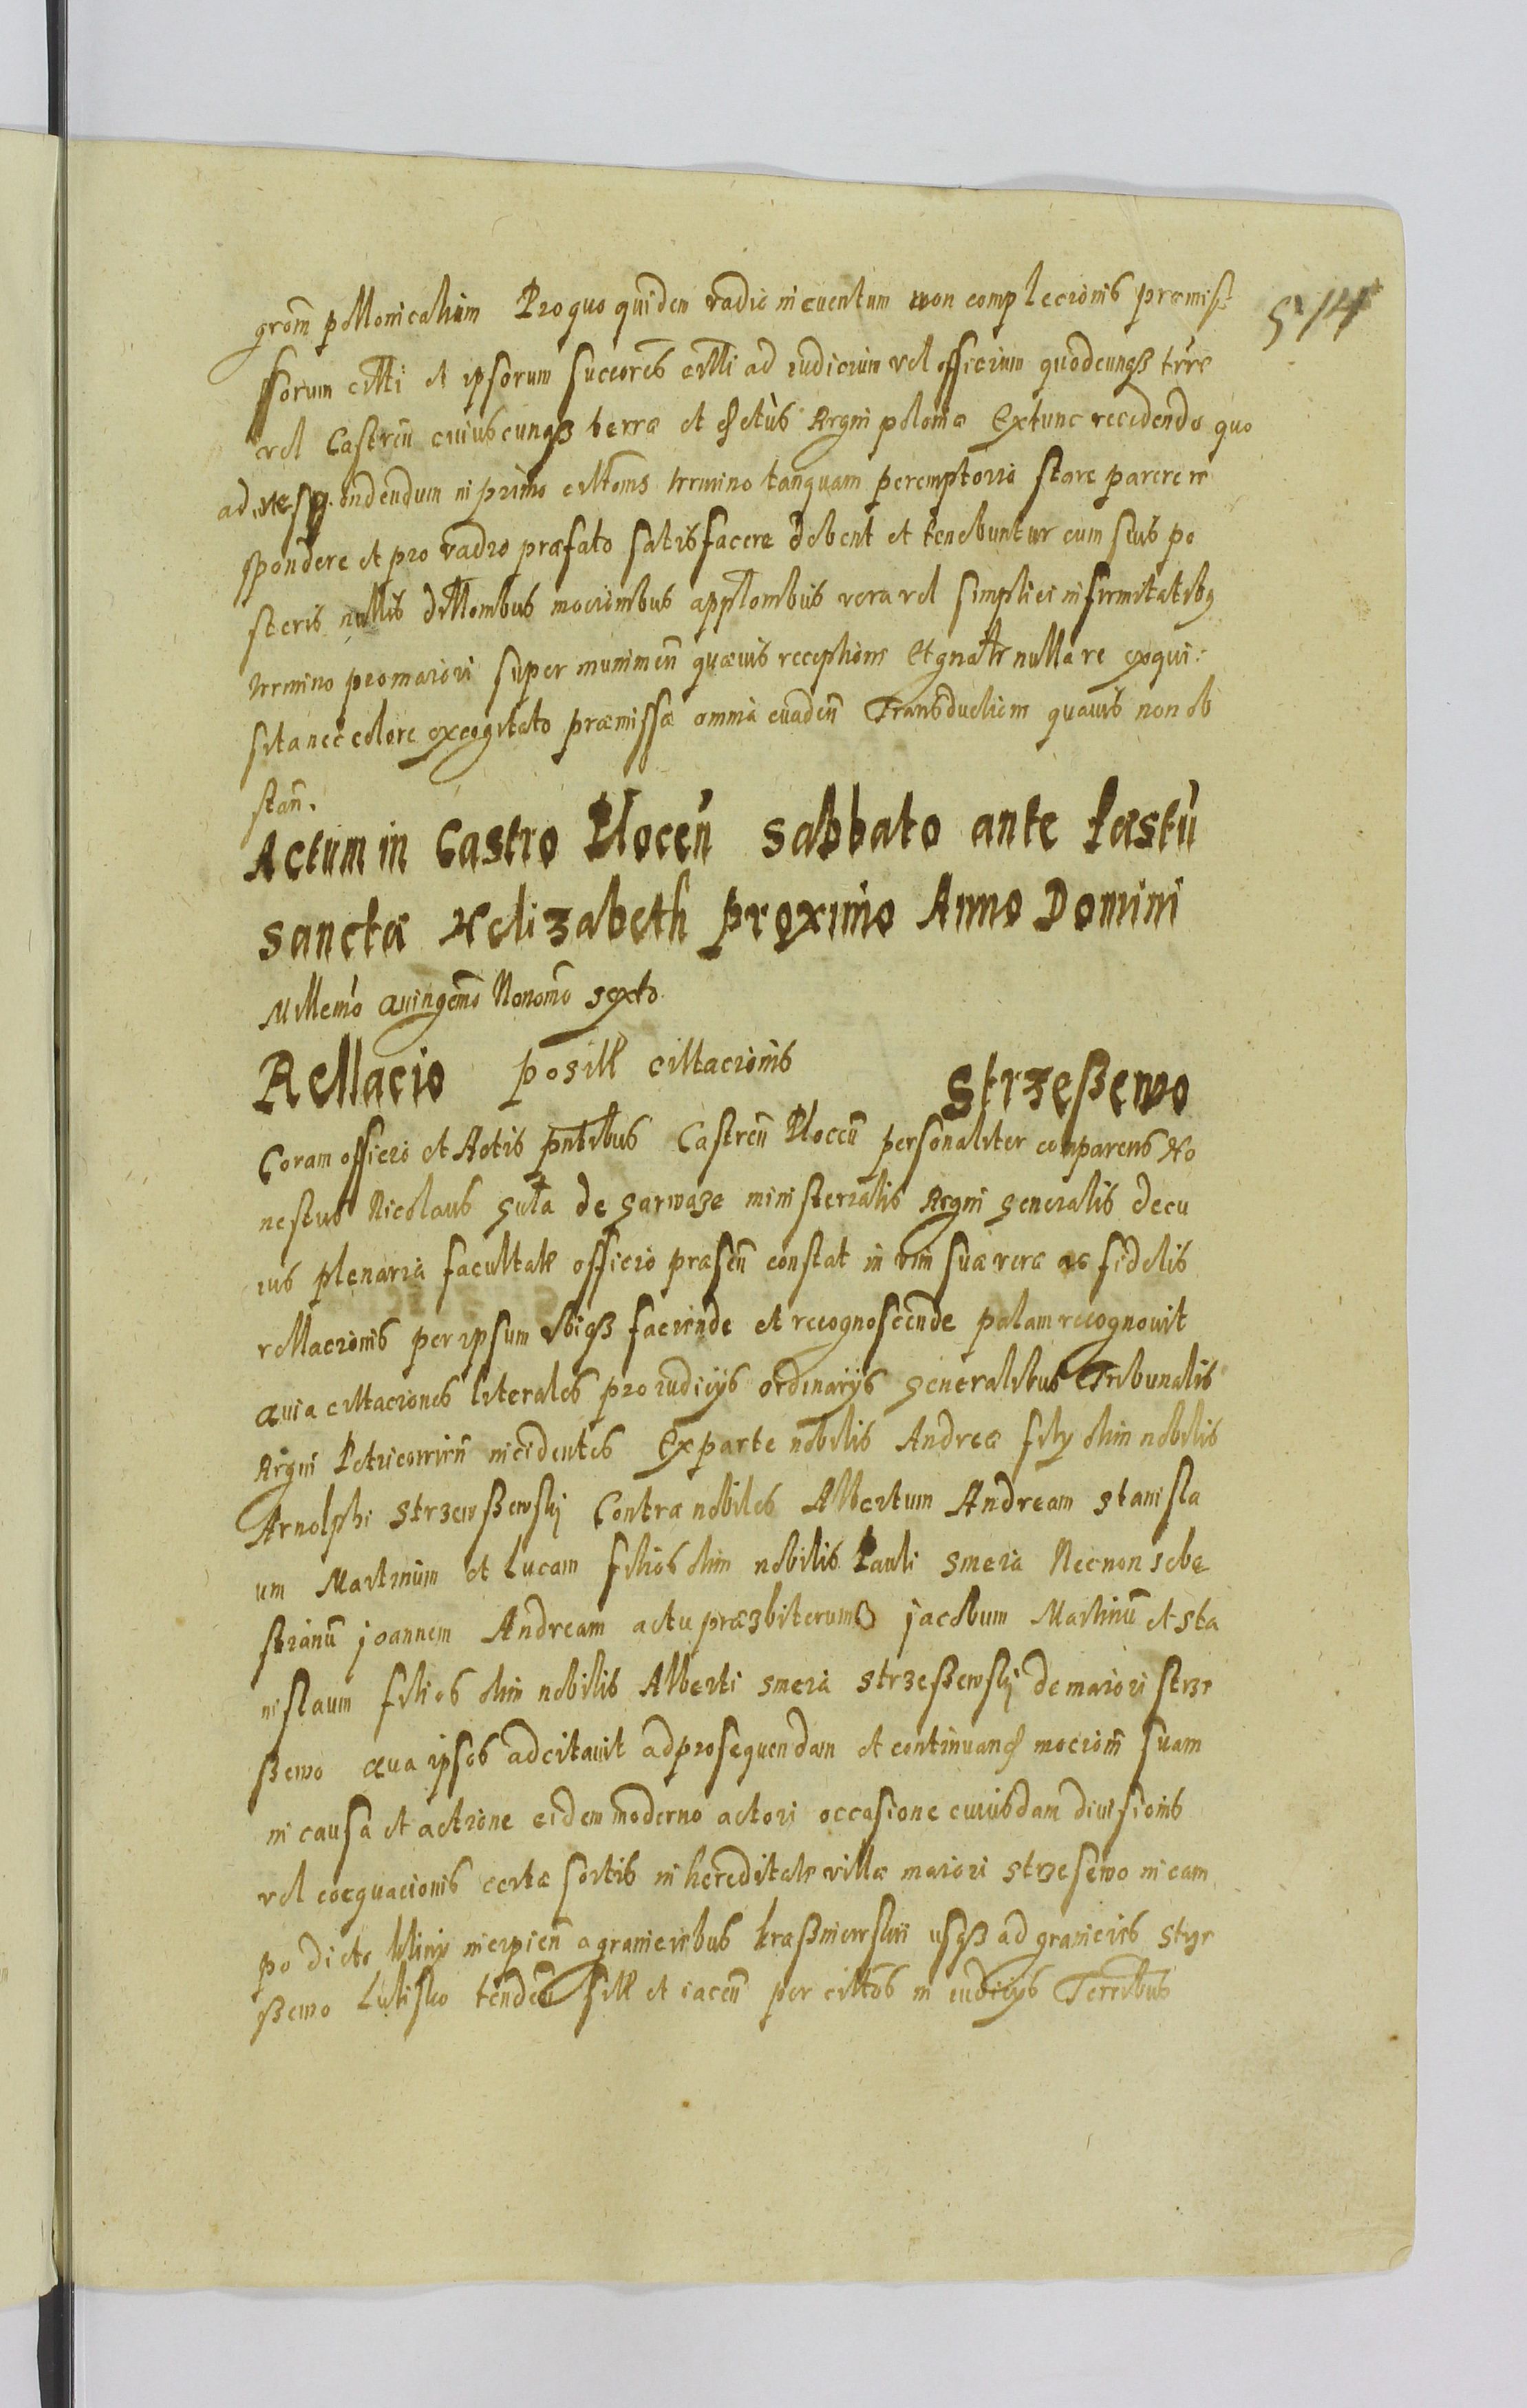 514
grom̄ pollonicaliim Pro quo quidem vadio in euentum non complecionis præmis
ssorum citti et ipsorum succores citti ad iudicium vel officium quodcunqß trre
vel Castren̄ cuiuscunqß terræ et Regni poloniæ Extunc recedendo quo
ad respondendum in primo termino tanquam peremptorio stare parere re
spondere et pro vadio præfato satisfacere debent et tenebuntur cum suis po
steris nullis dillombus mocionibus appłonibus vera vel simplici infirmitatibq
termino pro maiori super munimen̄ quævis receptione Et gnałr nulla re exqui:
sita nec colore excogitato præmissa omnia euaden̄ Transductiom quauis non ob
stan̄.
Actum in Castro Plocen̄ sabbato ante fæstū
sanctæ Helizabeth proximo Anno Domini
Millemo quingemo Nonomo sexto
Rellacio positt cittacionis Strzeßewo
Coram officio et Actis pntibus Castren̄ Plocen̄ personaliter comparens Ho
nestus Nicolaus Suta de Sarwaze ministerialis Regni generalis de cu
ius plenaria facultate officio præsen̄ constat in vim suæ veræ ac fidelis
rellacionis per ipsum ibiqß faciende et recognoscende palam recognouit
quia cittaciones literales pro iudicijs ordinarijs generalibus Tribunalis
Regni Petricovien̄ incidentes Ex parte nobilis Andreæ filij olim nobilis
Arnolphi Strzewßewskj Contra nobiles Albertum Andream Stanisla
um Martinum et Lucam filios olim nobilis Pauli Smeia Necnon Seba
stianū Joannem Andream actu præzbiterum Jacobum Martinū et Sta
nislaum filios olim nobilis Alberti Smeia Strzeßewskj de maiori strze
ßewo qua ipsos adcitauit ad prosequendam et continuand mociom̄ suam
in causa et actione eidem moderno actori occasione cuiusdam diuisionis
vel coequacionis certæ sortis in hereditate villæ maiori strzesewo in cam
po dicto incipien̄ a granicicibus kraßniewskii usqß ad granicies strze
ßewo tenden̄ sitt et iacen̄ per cittos in iudicijs Terrēibus